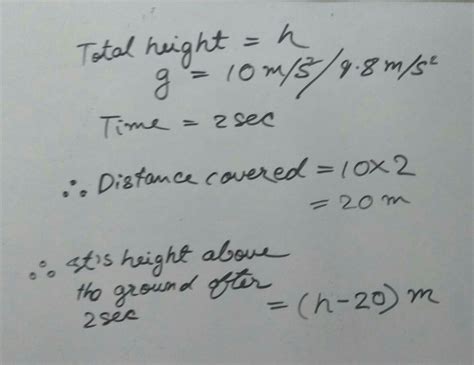 Total height = h
g = 10 m/s²/9.8 m/s²
Time = 2 sec
∴ Distance covered = 10×2
= 20 m
∴ It's height above
the ground after
2sec = (h-20) m